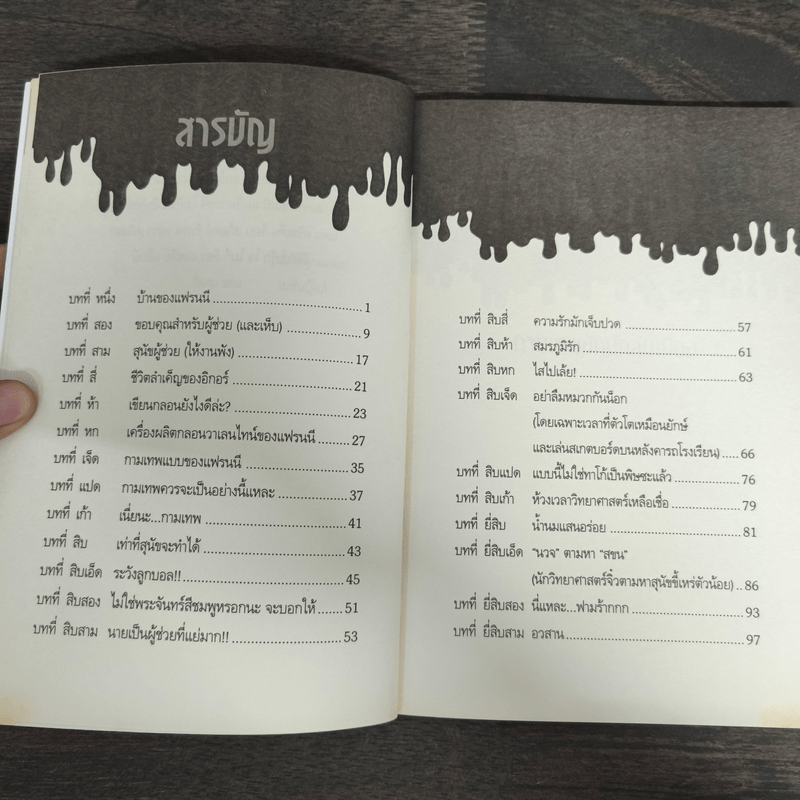 สารบัญ
บทที่ หนึ่ง บ้านของแฟรนนี ........ 1
บทที่ สอง ขอบคุณสำหรับผู้ช่วย (และเห็บ) ........ 9
บทที่ สาม สุนัขผู้ช่วย (ให้งานพัง) ........ 17
บทที่ สี่ ชีวิตลำเค็ญของอิกอร์ ........ 21
บทที่ ห้า เขียนกลอนยังไงดีล่ะ? ........ 23
บทที่ หก เครื่องผลิตกลอนวาเลนไทน์ของแฟรนนี ........ 27
บทที่ เจ็ด กามเทพแบบของแฟรนนี ........ 35
บทที่ แปด กามเทพควรจะเป็นอย่างนี้แหละ ........ 37
บทที่ เก้า เนี่ยนะ...กามเทพ ........ 41
บทที่ สิบ เท่าที่สุนัขจะทำได้ ........ 43
บทที่ สิบเอ็ด ระวังลูกบอล!! ........ 45
บทที่ สิบสอง ไม่ใช่พระจันทร์สีชมพูหรอกนะ จะบอกให้ ........ 51
บทที่ สิบสาม นายเป็นผู้ช่วยที่แย่มาก!! ........ 53
บทที่ สิบสี่ ความรักมักเจ็บปวด ........ 57
บทที่ สิบห้า สมรภูมิรัก ........ 61
บทที่ สิบหก ไสไปเล้ย! ........ 63
บทที่ สิบเจ็ด อย่าลืมหมวกกันน็อก
(โดยเฉพาะเวลาที่ตัวโตเหมือนยักษ์
และเล่นสเกตบอร์ดบนหลังคารถโรงเรียน) ..... 66
บทที่ สิบแปด แบบนี้ไม่ใช่ทาโก้เป็นพิษซะแล้ว ........ 76
บทที่ สิบเก้า ห้วงเวลาวิทยาศาสตร์เหลือเชื่อ ........ 79
บทที่ ยี่สิบ น้ำนมแสนอร่อย ........ 81
บทที่ ยี่สิบเอ็ด "นวจ" ตามหา "สขน"
(นักวิทยาศาสตร์จิ๋วตามหาสุนัขขี้เหร่ตัวน้อย) .. 86
บทที่ ยี่สิบสอง นี่แหละ...ฟามร้ากกก ........ 93
บทที่ ยี่สิบสาม อวสาน ........ 97